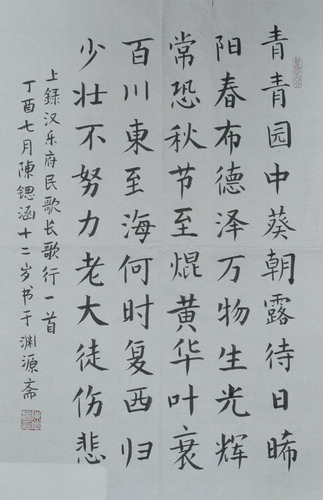 青青园中葵朝露待日晞
阳春布德泽万物生光辉
常恐秋节至焜黄华叶衰
百川東至海何时复西归
少壮不努力老大徒伤悲
上録汉乐府民歌长歌行一首
丁酉七月陳锶涵十二岁书于渊源斋